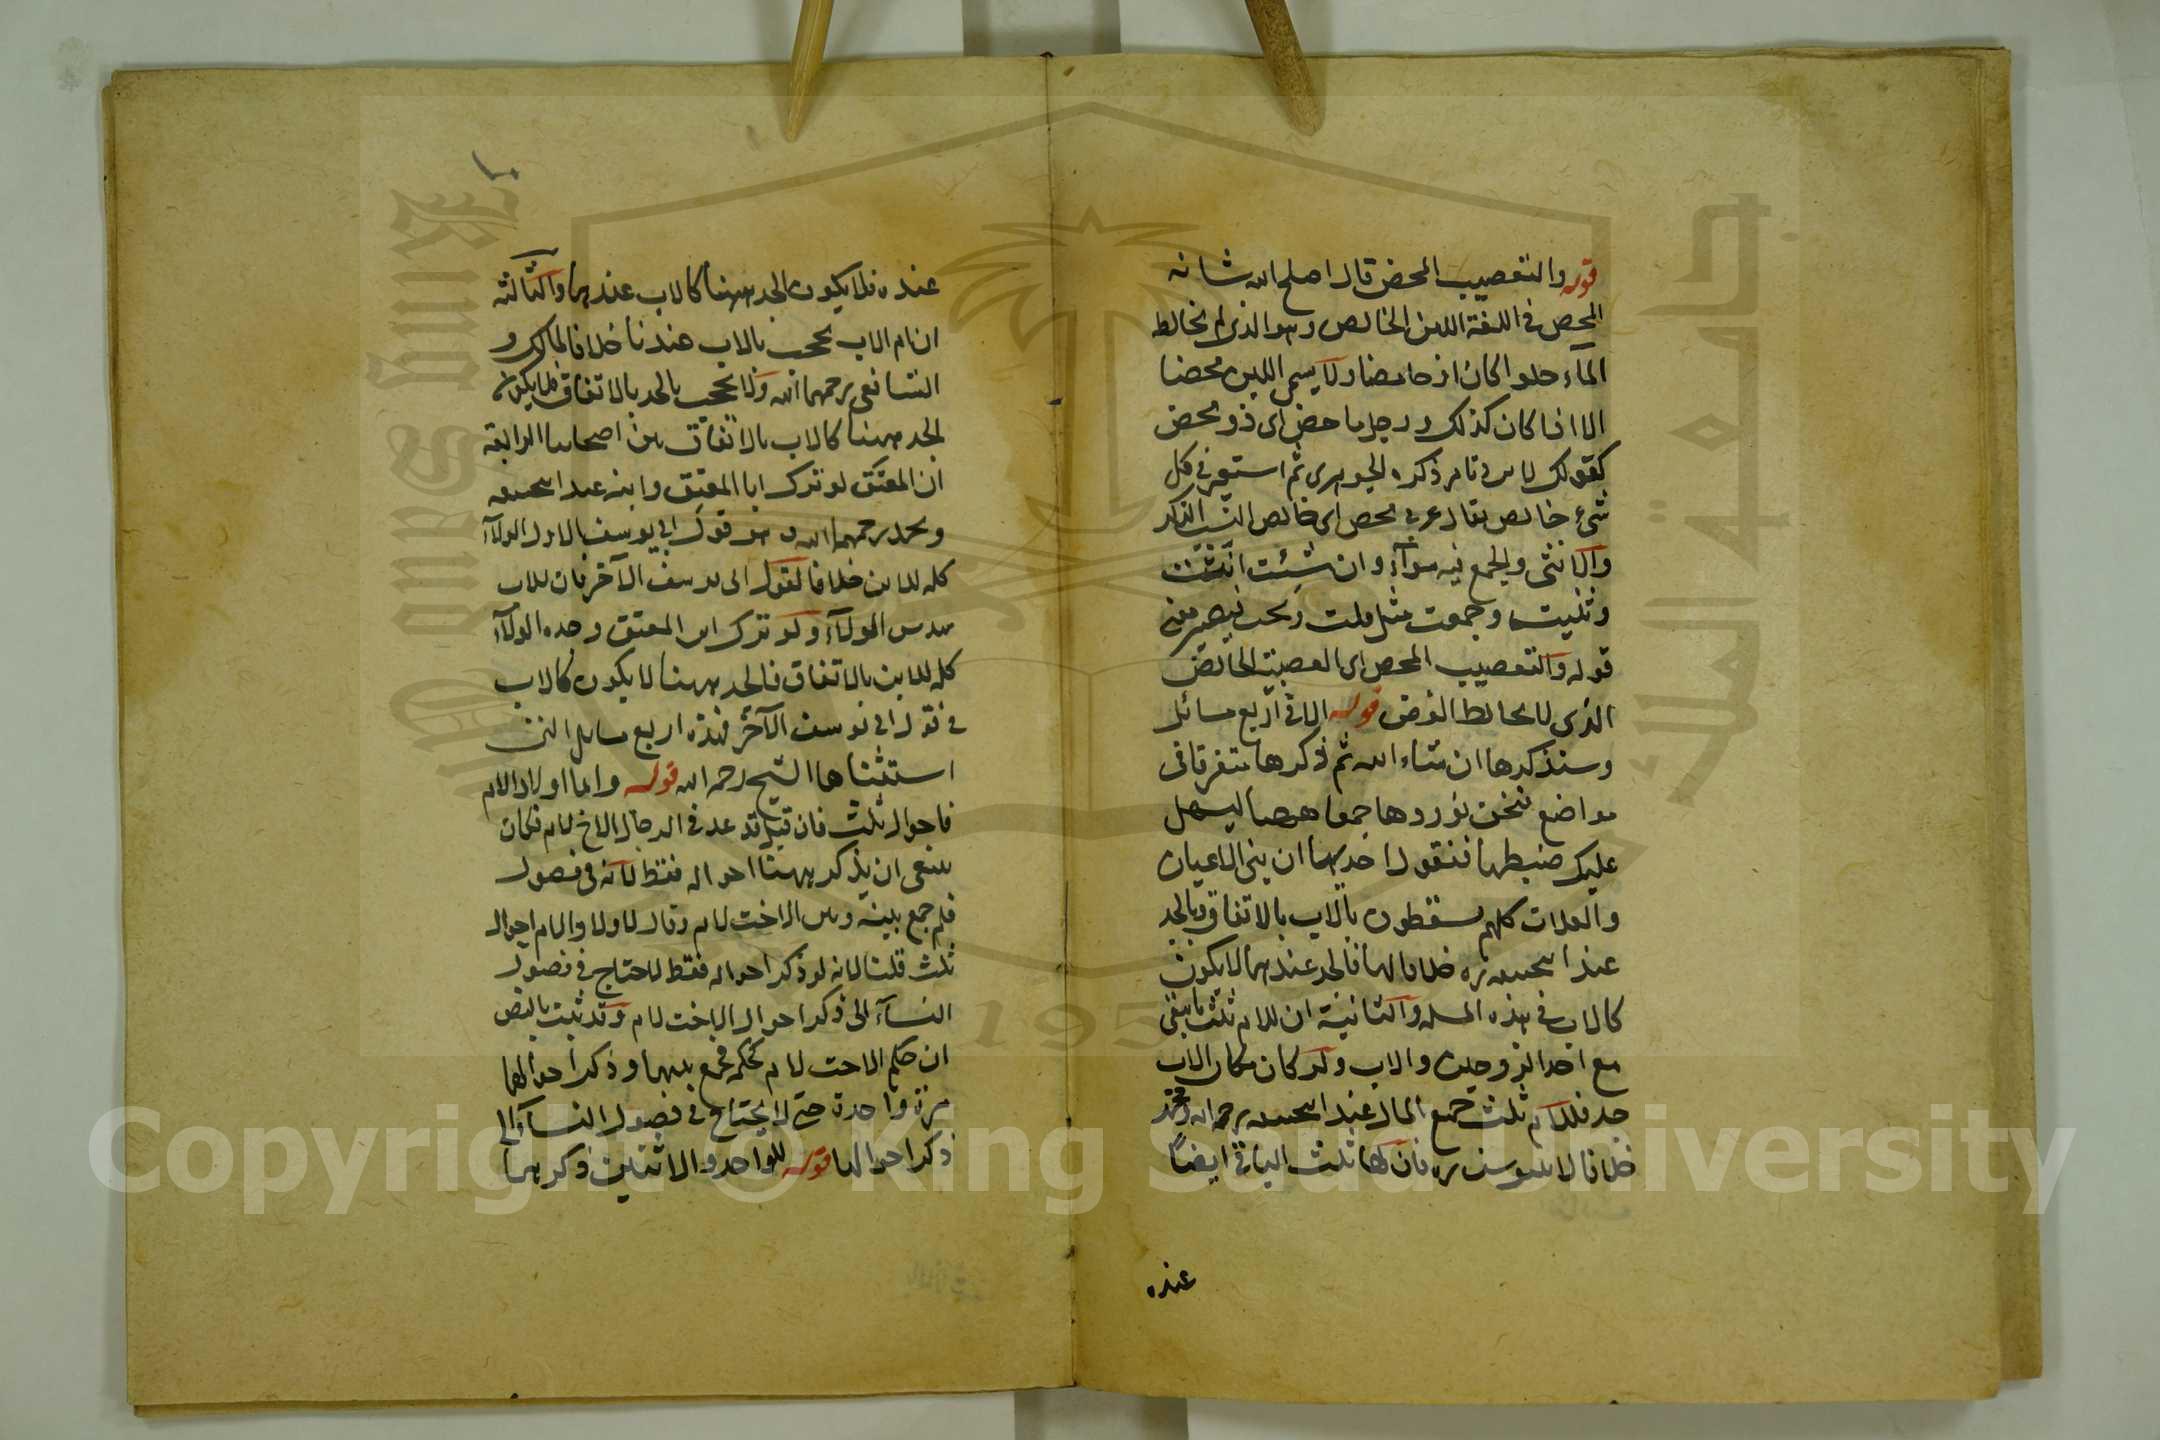 قوله والتعصيب المحض قال اصلح الله شانه
المحض في اللغة اللبن الخالص وهو الذي لم يخالط
الماء حلوا كان او حامضا ولا يسمى اللبن محضا
الا اذا كان كذلك ورجل ماحض اي ذو محض
كقولك لابن وتامر ذكره الجوهري ثم استعير في كل
شيء خالص يقال عربي محض اي خالص النسب الذكر
والانثى والجمع فيه سواء وان شئت انثت
وثنيت وجمعت مثل قلت وبحت فيصير معنى
قوله والتعصيب المحض اي العصبية الخالص
الذي لا يخالط الفرض قوله الا في اربع مسائل
وسنذكرها ان شاء الله ثم ذكرها متفرقا في
مواضع فنحن نوردها جمعا ههنا ليسهل
عليك ضبطها فنقول احديها ان بني الاعيان
والعلات كلهم يسقطون بالاب بالاتفاق وبالجد
عند ابي حنيفة ره خلافا لهما فالجد عندهما لا يكون
كالاب في هذه المسئلة والثانية ان للام ثلث ما يبقى
مع احد الزوجين والاب ولو كان مكان الاب
جد فللام ثلث جميع المال عند ابي حنيفة رحمه الله ومحمد
خلافا لابي يوسف ره فان لها ثلث الباقي ايضا
عنده
١٠
عنده فلا يكون الجد ههنا كالاب عندهما والثالثة
ان ام الاب تحجب بالاب عندنا خلافا لمالك و
الشافعي رحمهما الله ولا تحجب بالجد بالاتفاق فلا يكون
الجد ههنا كالاب بالاتفاق بين اصحابنا الرابعة
ان المعتق لو ترك ابا المعتق وابنه عند ابي حنيفة
ومحمد رحمهما الله وهو قول ابي يوسف الاول الولاء
كله للابن خلافا لقول ابي يوسف الآخر فان للاب
سدس الولاء ولو ترك ابن المعتق وجده الولاء
كله للابن بالاتفاق فالجد ههنا لا يكون كالاب
في قول ابي يوسف الآخر فهذه اربع مسائل التي
استثناها الشيخ رحمه الله قوله واما اولاد الام
فاحوال ثلث فان قيل قد عد في الرجال الاخ لام فكان
ينبغي ان يذكر ههنا احواله فقط لانه في فصول
فلم جمع بينه وبين الاخت لام وقال لاولاد الام احوال
ثلث قلنا لانه لو ذكر احواله فقط لاحتاج في فصول
النساء الى ذكر احوال الاخت لام وقد ثبت بالنص
ان حكم الاخت لام كحكمه فجمع بينهما وذكر احوالهما
مرة واحدة حتى لا يحتاج في فصول النساء الى
ذكر احوالها قوله للواحد والاثنتين ذكرهما
جامعة الملك سعود
King Saud University
1957
Copyright © King Saud University